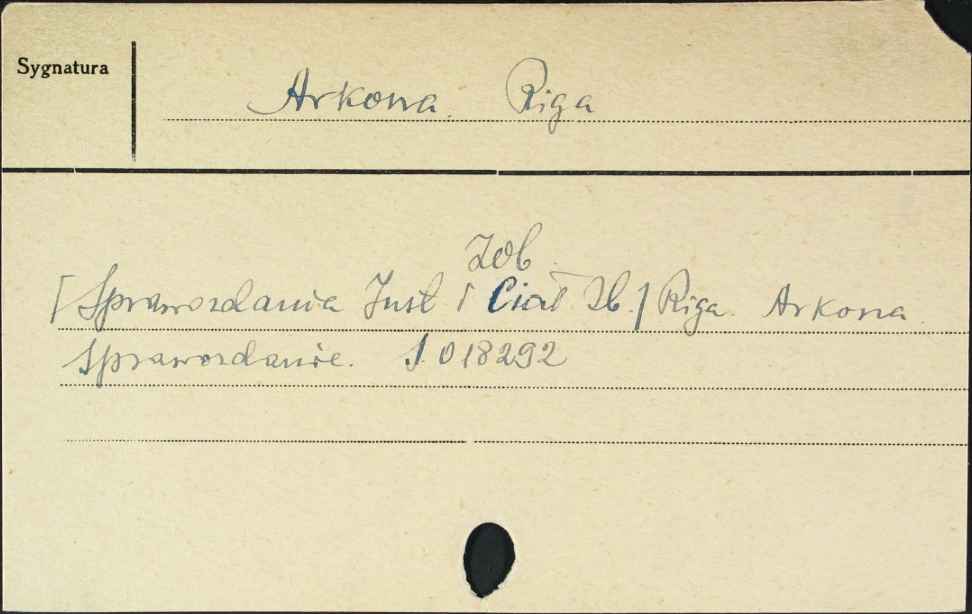 Sygnatura
Arkona. Riga
Zob.
[Sprawozdania Inst i Ciał Zb.] Riga. Arkona.
Sprawozdanie. S. 018292